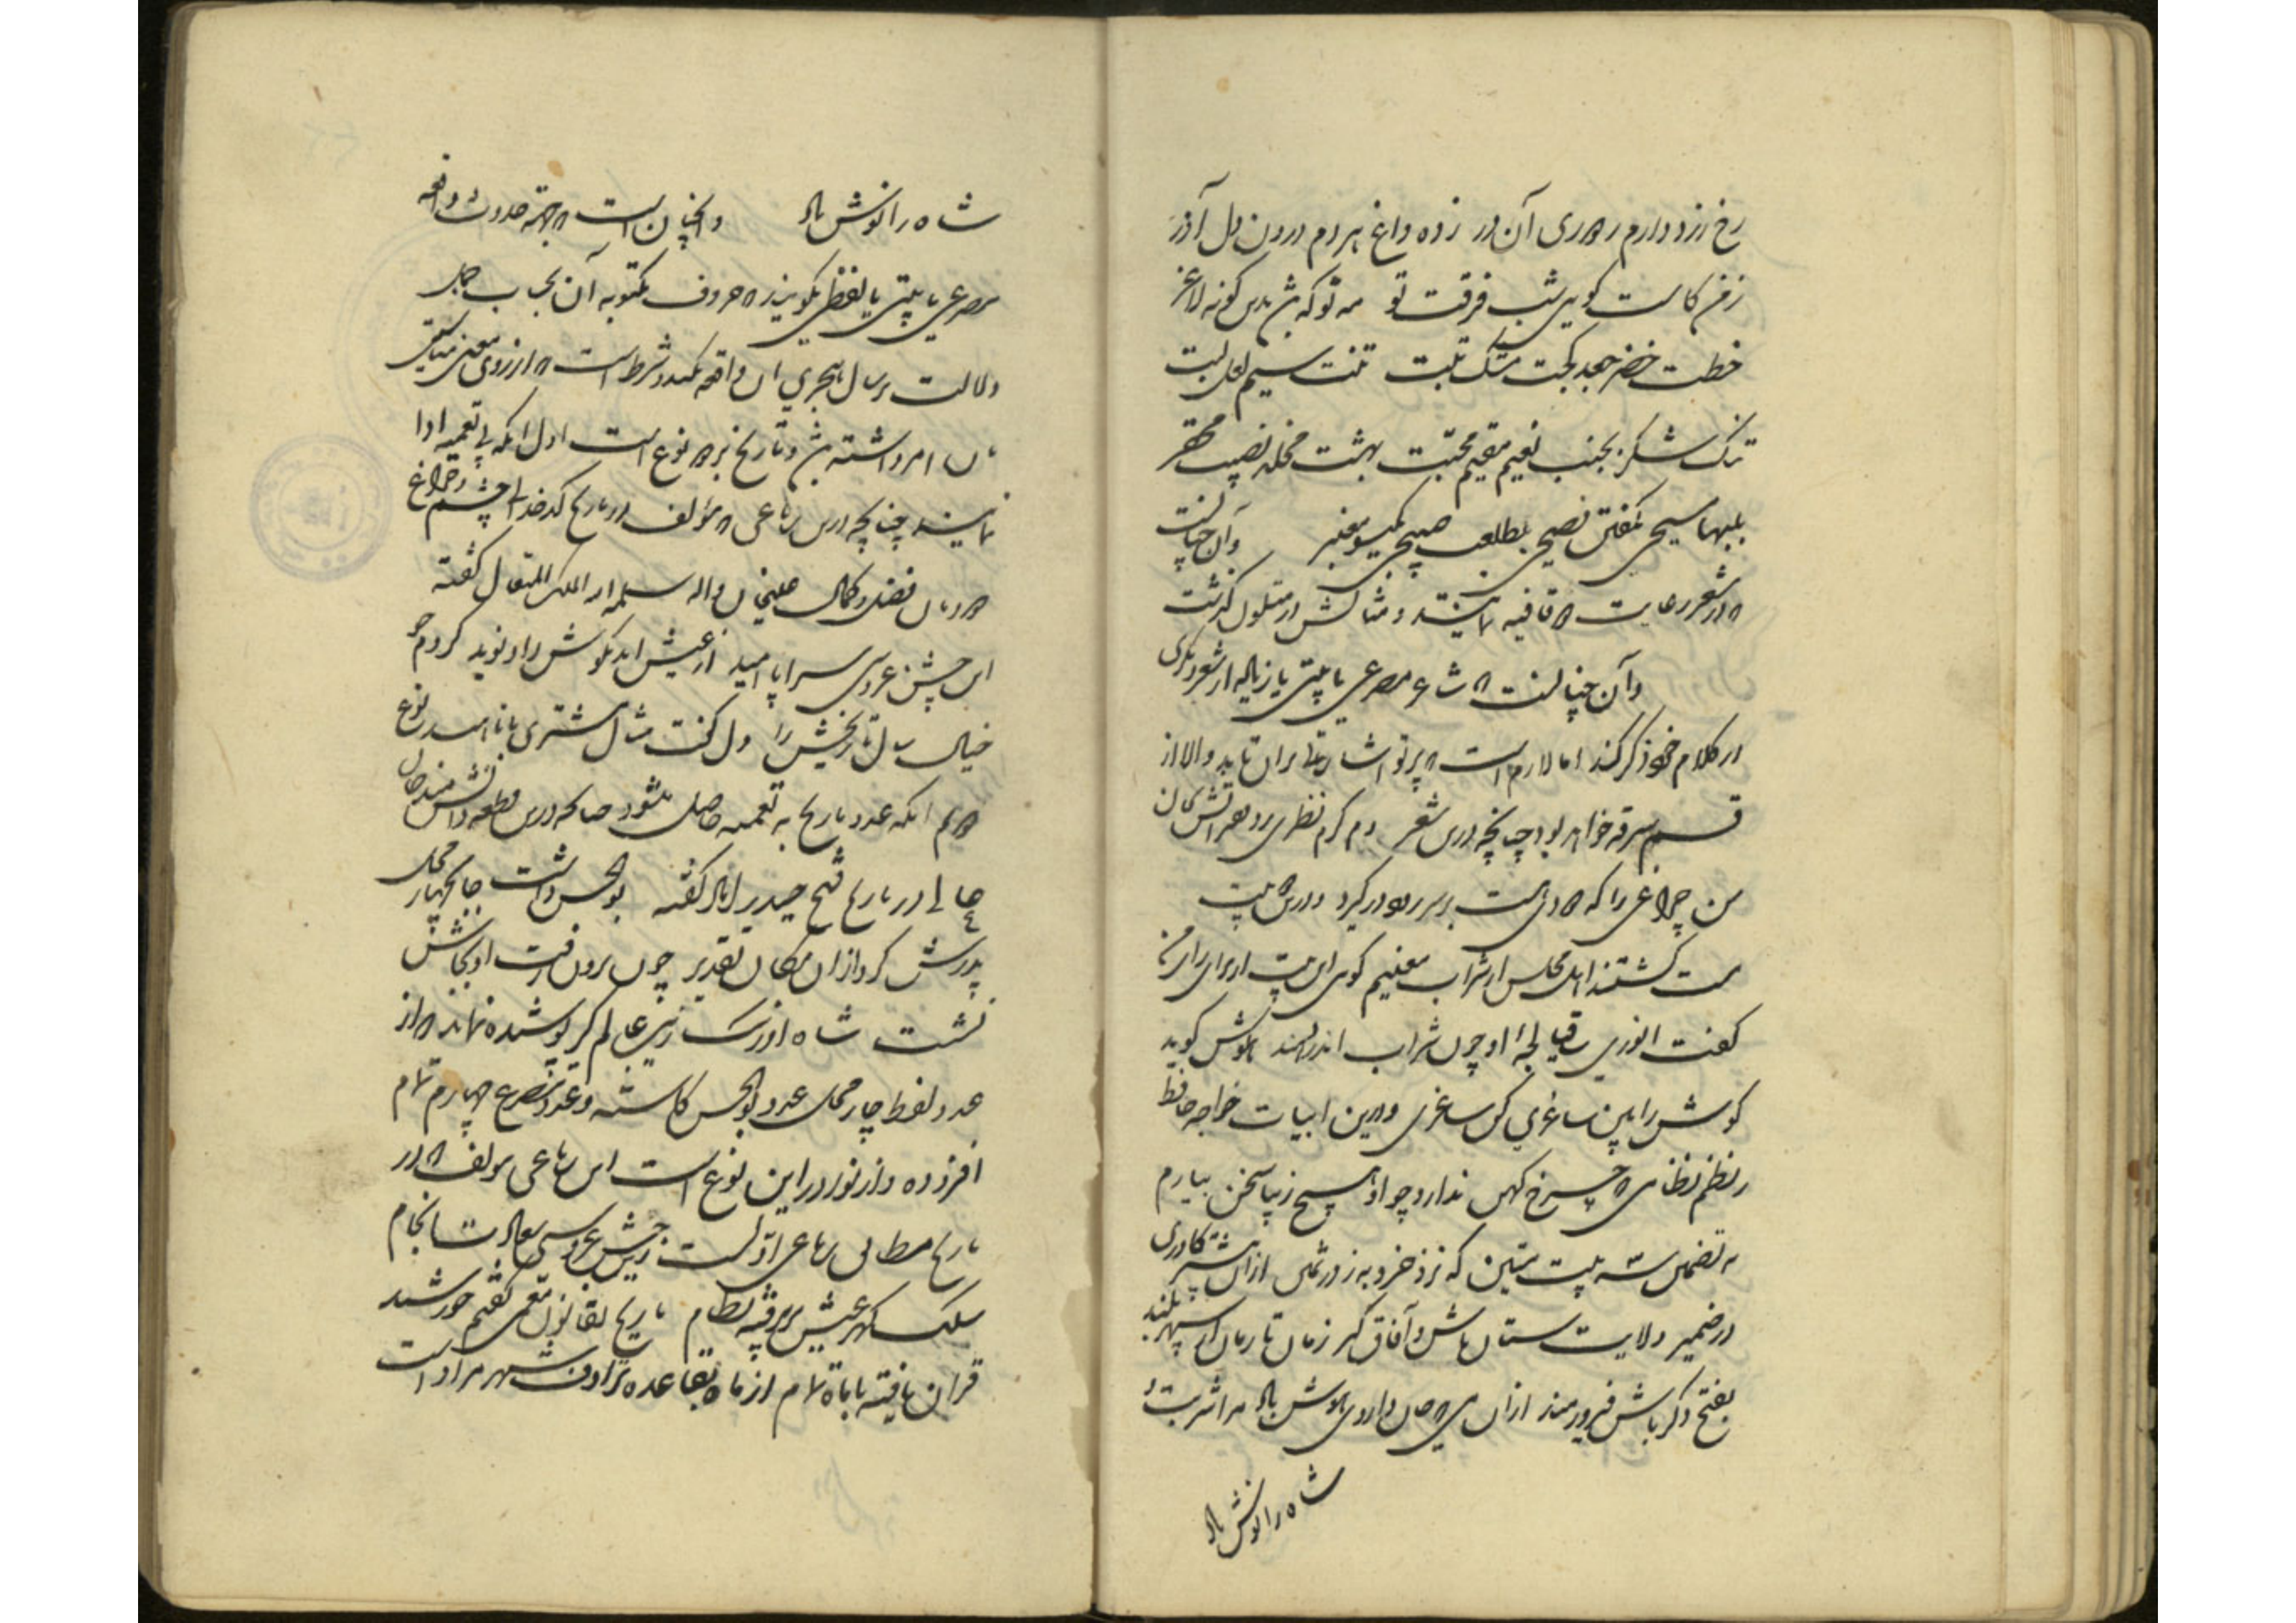 رخ زرد دارم ز دوری آن در زده داغ هر دم درون دل آذر
کاست کویی شب فرقت تو مه تو که شد بدین کونه لاغر
خطت خضر جعد کجت مشک تبت تنت سیم لعل لبت
ترک شکر بجنب نعیم مقیم محبت بهشت مخلد نصیب محقر
بلبها مسیحی بکفتن فصیحی بطلعت صبیحی بکیسو معنبر وآن چنانست
که در شعر رعایت قافیه نمایند و مثالش در متلون کذشت
وآن چنانست که شاعر مصرعی یا بیتی یا زیاده از شعر دیکری
در کلام خود ذکر کند اما لازم است که پرتو اشارتی بران تابد والا از
قسم سرقه خواهد بود چنانچه درین شعر دم کرم نظیری آتش
من چراغی را که دودی هست بر سر زود در کیرد و درین بیت
مست کشتند اهل مجلس از شراب معنیم کوی این بیت از برای
کفت انوری باقیا او چون شراب اندر دهند هوش کوید
کوش را هین ساغری کن ساغری و درین ابیات خواجه حافظ
ز نظم نظامی که چرخ کهن ندارد چو او هیچ زیبا سخن بیارم
به تضمین سه بیت متین که نزد خرد به ز در ثمین ازان بیشتر کاوری
در ضمیر ولایت ستان باش و آفاق کیر زمان تا زمان از سپهر بلند
بفتح دکر باش فیروزمند ازان می که جان داروی هوش باد مرا شربت و
شاه را نوش باد
شاه را نوش باد و آن چنان است که بجهة حدوث واقعه
مصرعی یا بیتی یا لفظی بکویند که حروف مکتوبه آن بحساب جمل
دلالت بر سال هجری آن واقعه بکند و شرط است که از روی معنی مناسبتی
بآن امر داشته باشد و تاریخ بر دو نوع است اول آنکه بی تعمیه ادا
نمایند چنانچه درین رباعی که مؤلف در تاریخ کدخدایی چشم و چراغ
دودمان فضل و کمال علیخان واله سلمه الملک المتعال کفته
این جشن عروسی سراپا امید از عیش ابد بکوش دل داد نوید کردم چو
خیال سال تاریخش را دل کفت مثال مشتری با ناهید نوع
دوم آنکه عدد تاریخ به تعمیه حاصل شود چنانکه درین قطعه دانشمند خان
عالی در تاریخ فتح حیدرآباد کفته بوالحسن داشت جا بچار محل
بدرش کرد ازان مکان تقدیر چون برون رفت او بجایش
نشست شاه اورنک زیب عالم کیر پوشیده نماند که از
عدد لفظ چار محل عدد بوالحسن کاسته و عدد مصرع چهارم تمام
افزوده و از نوادر این نوع است این رباعی مولف که در
تاریخ مطابق رباعی اولست زین جشن عروسی سعادت انجام
سلک کهر عیش پذیرفته نظام تاریخ بقانون معمی کفتم خورشید
قران یافته با ماه تمام از ماه بقاعده ترادف شهر مراد است